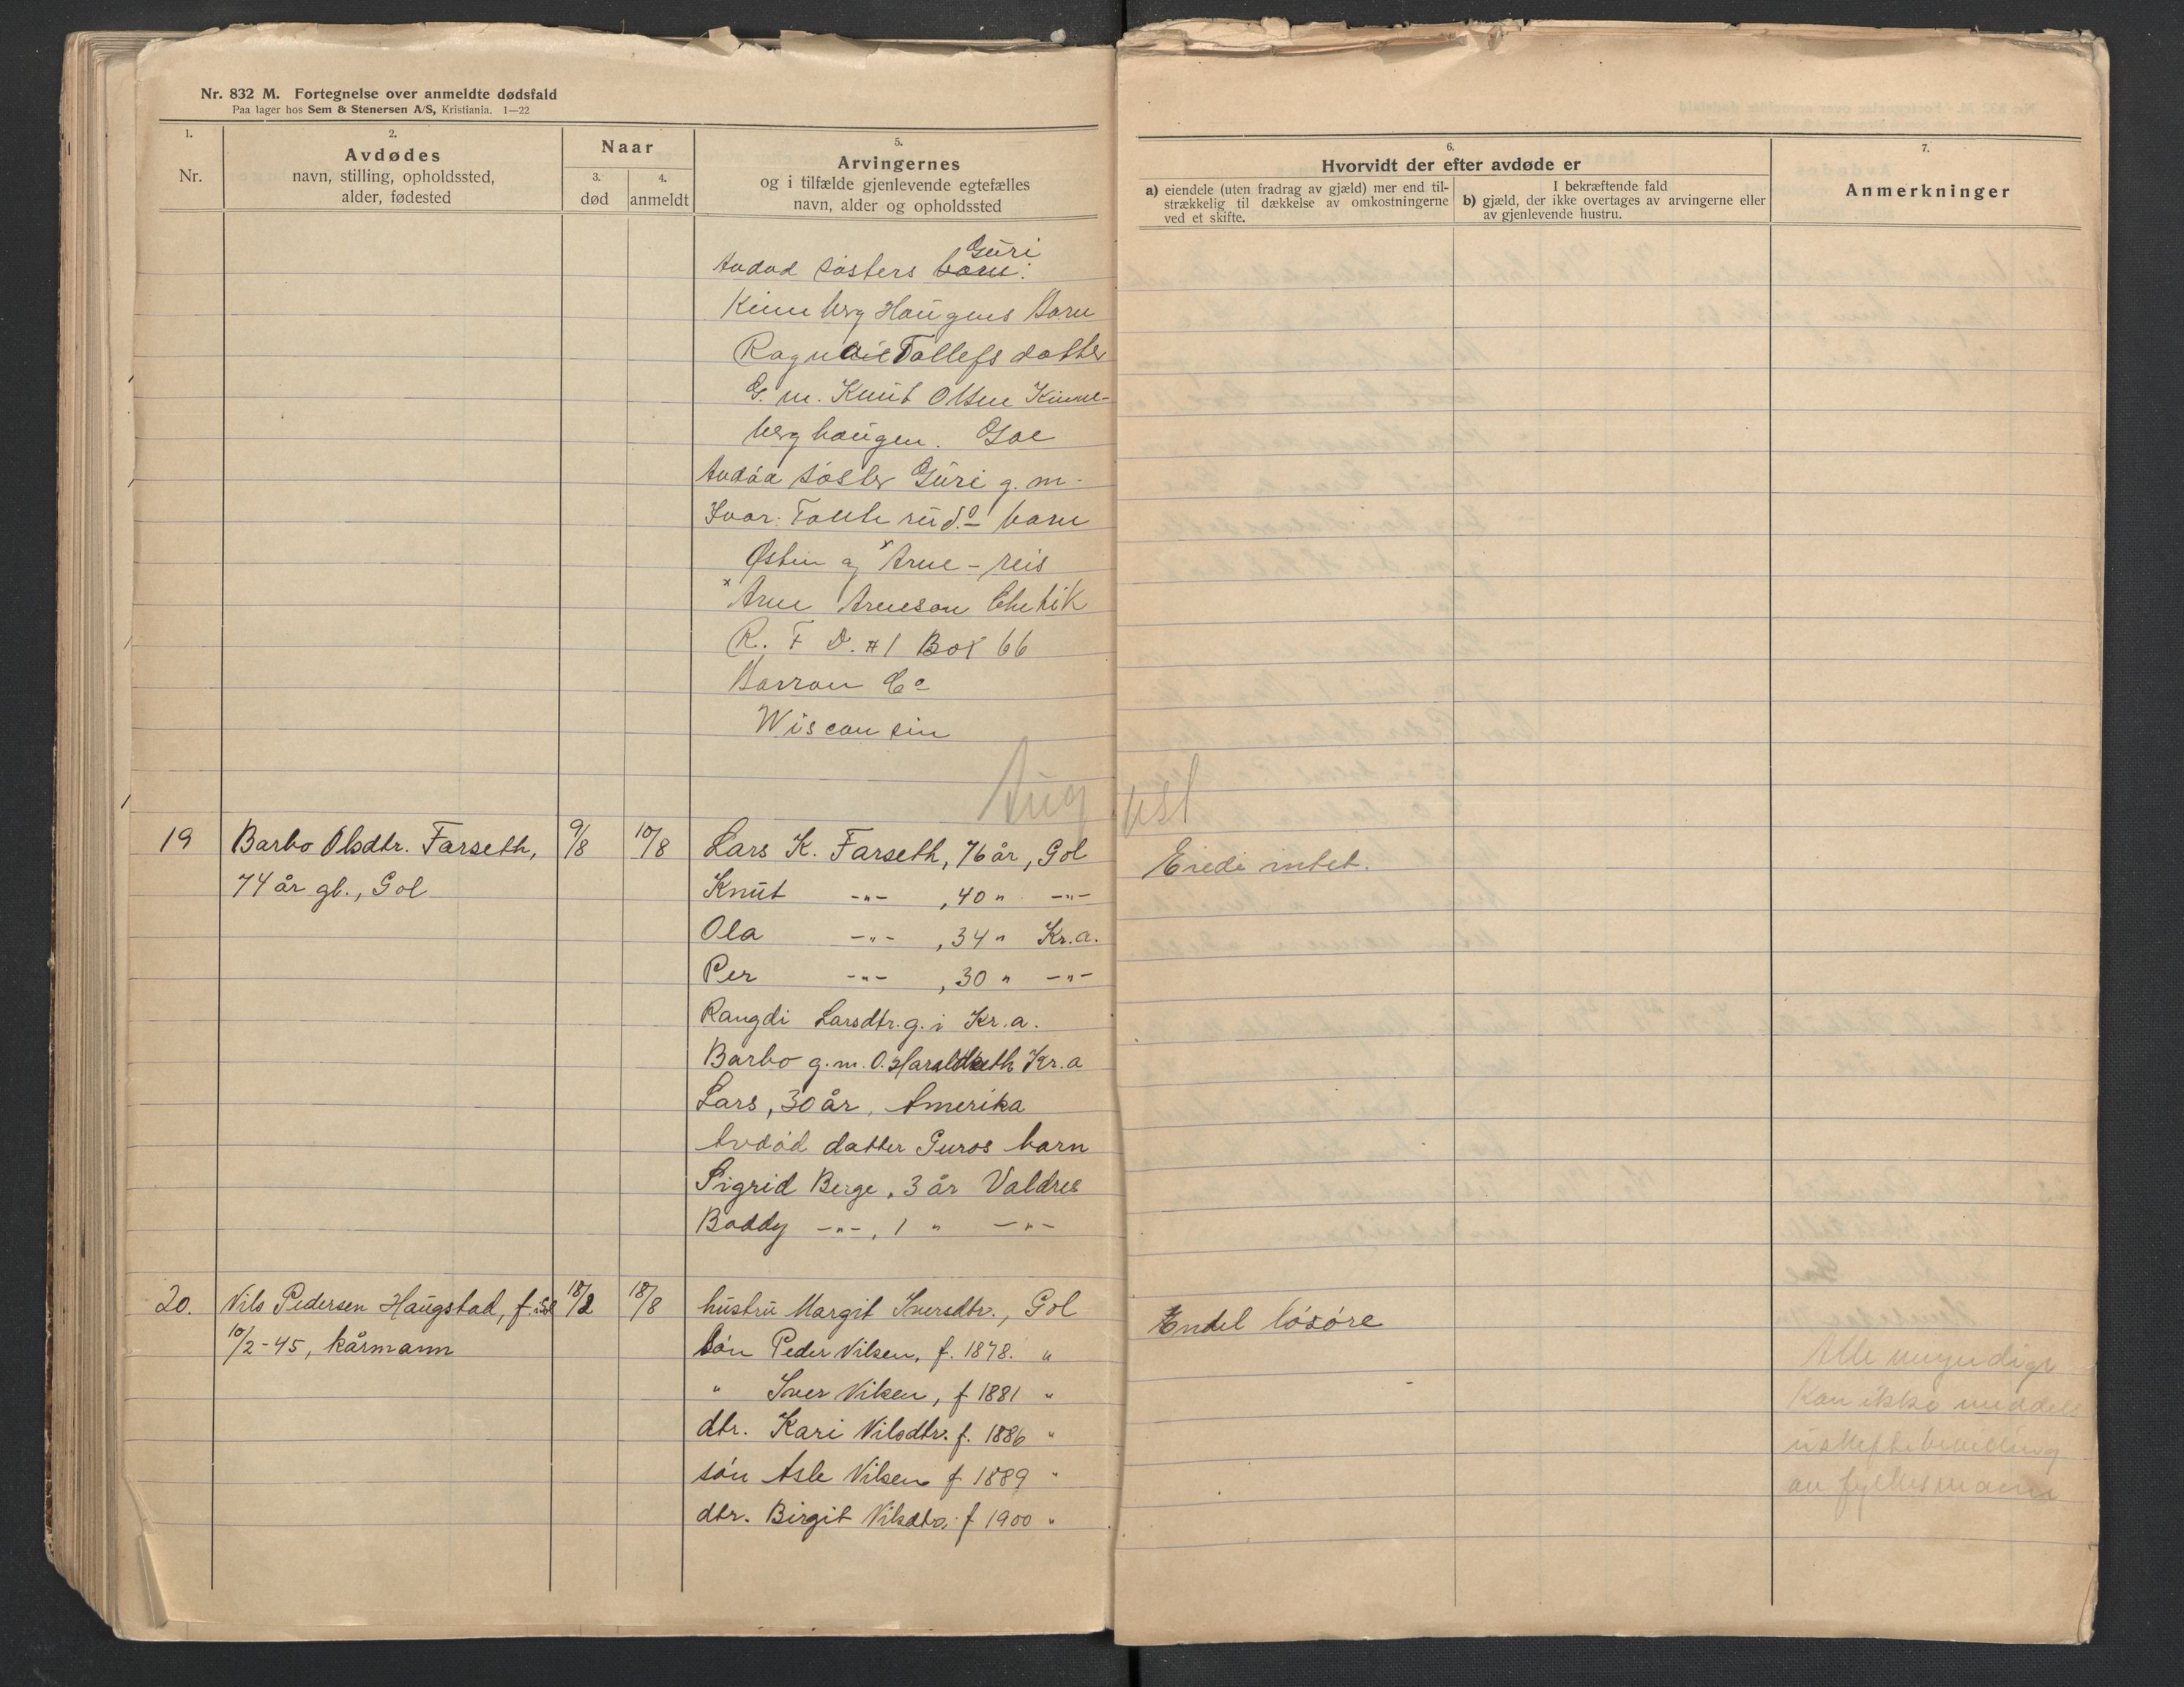 Nr. 832 M. Fortegnelse over anmeldte dødsfald
Paa lager hos Sem & Stenersen A/S, Kristiania. 1—22
1.
Nr.
2.
Avdødes
navn, stilling, opholdssted,
alder, fødested
Naar
3.
død
4.
anmeldt
5.
Arvingernes
og i tilfælde gjenlevende egtefælles
navn, alder og opholdssted
6.
Hvorvidt der efter avdøde er
a) eiendele (uten fradrag av gjæld) mer end til-
strækkelig til dækkelse av omkostningerne
ved et skifte.
I bekræftende fald
b) gjæld, der ikke overtages av arvingerne eller
av gjenlevende hustru.
7.
Anmerkninger
Guri
Avdød søsters barn:
Kinneberg Haugens Barn
Tollefs datter
G. m. Knut Olsen Kinne-
berghaugen. Gol
Avdöd söster Guri g. m.
Ivar barn
Østen og × Arne - reis
× Arne Arneson
R. F. D. #1 Box 66
Barron Co
Wisconsin
August
19 Barbo Olsdtr. Farseth, 9/8 10/8 Lars K. Farseth, 76 år, Gol Eiede intet.
74 år gl., Gol
Knut -"- , 40 " -"-
Ola -"- , 34 " Kr.a.
Per -"- , 30 " -"-
Rangdi Larsdtr. g. i Kr.a.
Barbo g.m. O. Kr.a
Lars, 30 år, Amerika
Avdöd datter Guros barn
Sigrid Berge, 3 år Valdres
Boddy -"-, 1 " -"-
20. Nils Pedersen Haugstad, f. i Gol 18/8 hustru Margit Iversdtr., Gol Endel lösöre
10/2-45, kårmann
sön Peder Nilsen, f. 1878. "
" Iver Nilsen, f 1881 "
dtr. Kari Nilsdtr. f. 1886 "
sön Asle Nilsen f 1889 "
dtr. Birgit Nilsdtr. f 1900 "
Alle myndige
Kan ikke meddele
uskiftebevilling
av fylkesmann